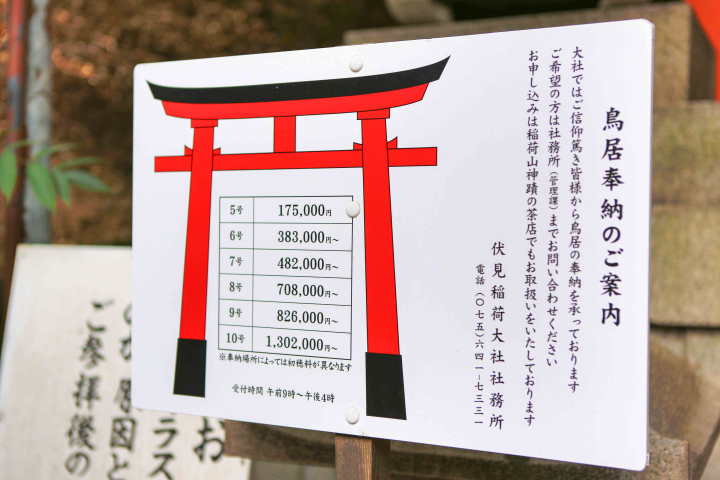 鳥居奉納のご案内
大社ではご信仰篤き皆様から鳥居の奉納を承っております
ご希望の方は社務所（管理課）までお問い合わせください
お申し込みは稲荷山神蹟の茶店でもお取扱いをいたしております
伏見稲荷大社社務所
電話（〇七五）六四一−七三三一
5号 175,000円
6号 383,000円～
7号 482,000円～
8号 708,000円～
9号 826,000円～
10号 1,302,000円～
※奉納場所によっては初穂料が異なります
受付時間 午前9時～午後4時
お
ラス
原因と
ご参拝後の